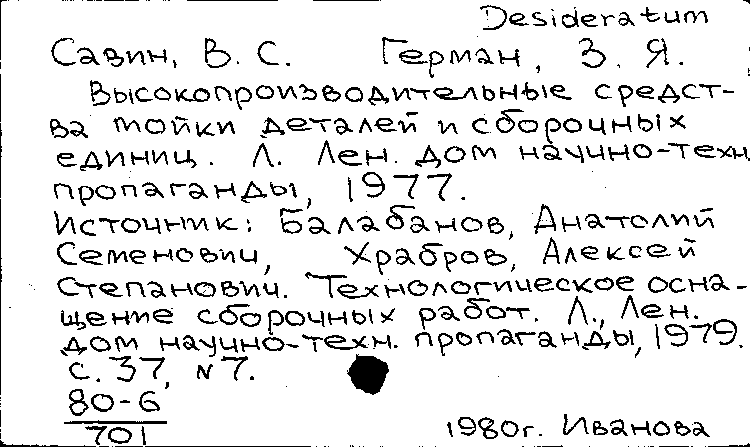 Desideratum
Савин, В. С. Герман, З. Я.
Высокопроизводительные средст-
ва мойки деталей и сборочных
единиц. Л. Лен. дом научно-техн
пропаганды, 1977.
Источник: Балабанов, Анатолий
Семенович, Храбров, Алексей
Степанович. Технологическое осна-
щение сборочных работ. Л., Лен.
дом научно-техн. пропаганды, 1979.
с. 37, №7.
80-6
701
1980г. Иванова